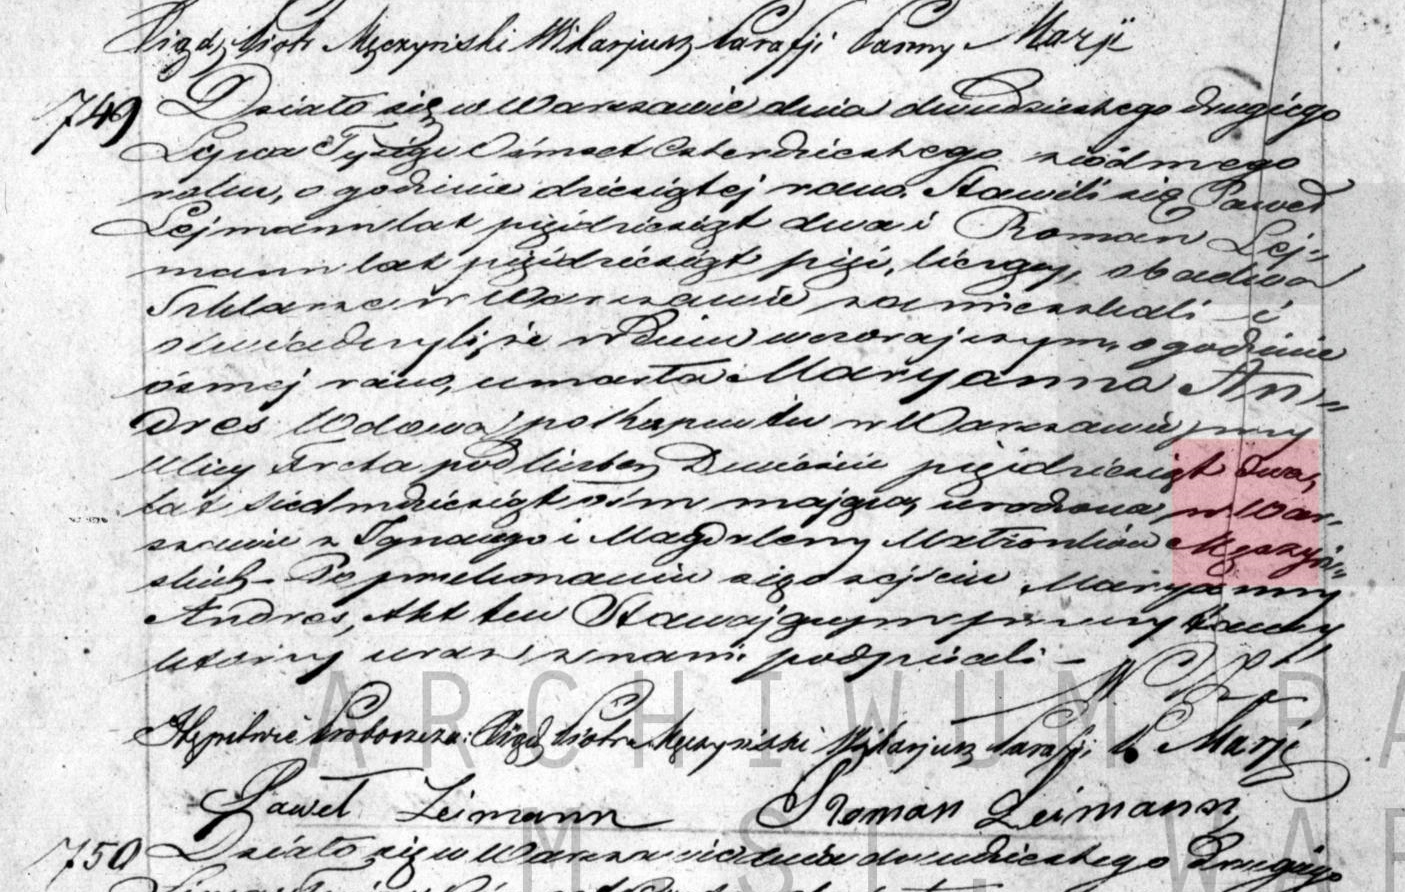 Xiądz Piotr Męczyński Wikarjusz Parafji Panny Marji
749 Działo się w Warszawie dnia dwudziestego drugiego
Lipca Tysiąc Ośmset Czterdziestego siódmego
roku, o godzinie dziesiątej rano. Stawili się Paweł
Lejmann lat pięćdziesiąt dwa i Roman Lej-
mann lat pięćdziesiąt pięć, liczący, obadwa
Szklarze w Warszawie zamieszkali i
oświadczyli, że w Dniu wczorajszym, o godzinie
ósmej rano, umarła Maryanna An-
dres Wdowa, w Warszawie przy
Ulicy Freta pod liczbą Dwieście pięćdziesiąt dwa,
lat siedmdziesiąt ośm mająca, urodzona w War-
szawie z Ignacego i Magdaleny Małżonków
skich – Po przekonaniu się o zejściu Maryanny
Andres, Akt ten Stawającym przeczytany
którzy wraz z nami podpisali –
Zastępstwie Proboszcza: Xiądz Piotr Męczyński Wikarjusz Parafji P. Marji
Paweł Leimann Roman Leimann
750 Działo się w Warszawie dnia dwudziestego Drugiego
ARCHIWUM PA
M ST. WAR